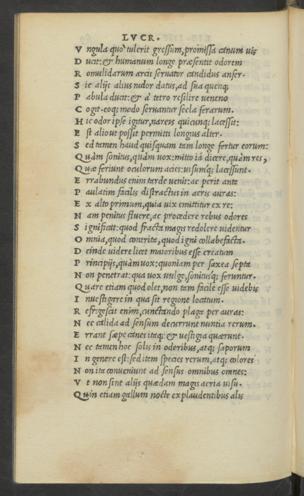 LVCR.
V ngula quo tulerit gressum, promissa canum uis
D ucit: & humanum longe præsentit odorem
R omulidarum arcis seruator candidus anser.
S ic alijs alius nidor datus, ad sua quenq;
P abula ducit: & a tetro resilire ueneno
C ogit: eoq; modo seruantur secla ferarum.
H ic odor ipse igitur, nares quicunq; lacessit:
E st alio ut possit permitti longius alter.
S ed tamen haud quisquam tam longe fertur eorum:
Q uàm sonitus, quàm uox: mitto iā dicere, quàm res,
Q uæ feriunt oculorum acies: uisumq; lacessunt.
E rrabundus enim tarde uenit: ac perit ante
P aulatim facilis distractus in aeris auras:
E x alto primum, quia uix emittitur ex re:
N am penitus fluere, ac procedere rebus odores
S ignificat: quod fracta magis redolere uidentur
O mnia, quod contrita, quod igni collabefacta.
D einde uidere licet maioribus esse creatum
P rincipijs, quàm uox: quoniam per saxea septa
N on penetrat: qua uox uulgo, sonitusq; feruntur.
Q uare etiam quod olet, non tam facile esse uidebis
I nuestigare in qua sit regione locatum.
R efrigescit enim, cunctando plaga per auras:
N ec calida ad sensum decurrunt nuntia rerum.
E rrant sæpe canes itaq; & uestigia quærunt.
N ec tamen hoc solis in odoribus, atq; saporum
I n genere est: sed item species rerum, atq; colores
N on ita conueniunt ad sensus omnibus omnes:
V t non sint alijs quædam magis acria uisu.
Q uin etiam gallum nocte explaudentibus alis